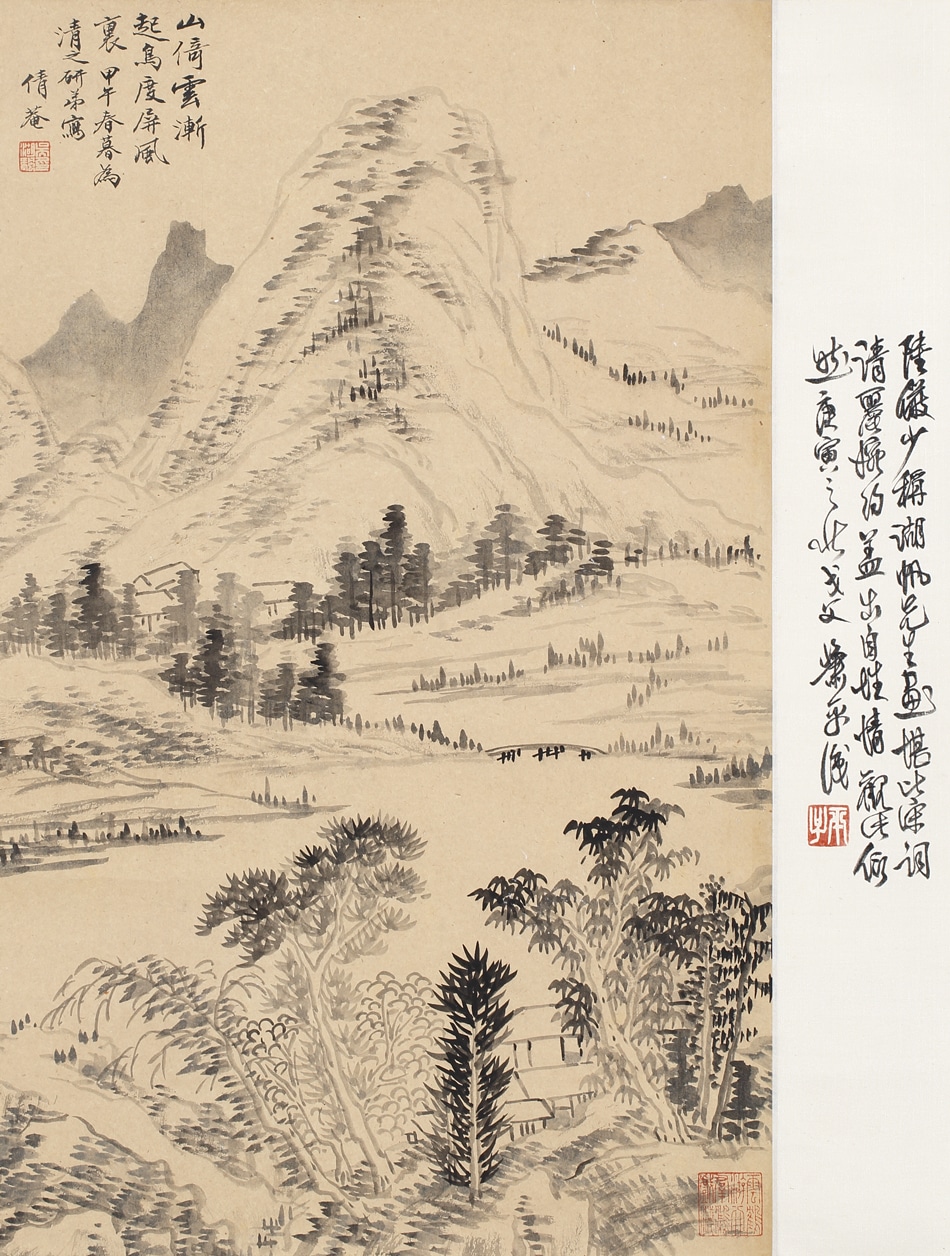 陸儼少稱湖帆先生畫堪比宋詞
清麗婉約蓋出自性情觀此信
然庚寅之秋戈父
山倚雲漸
起鳥度屏風
裏甲午春暮為
清之研弟寫
倩菴
雲鶴游天羣鴻戲海